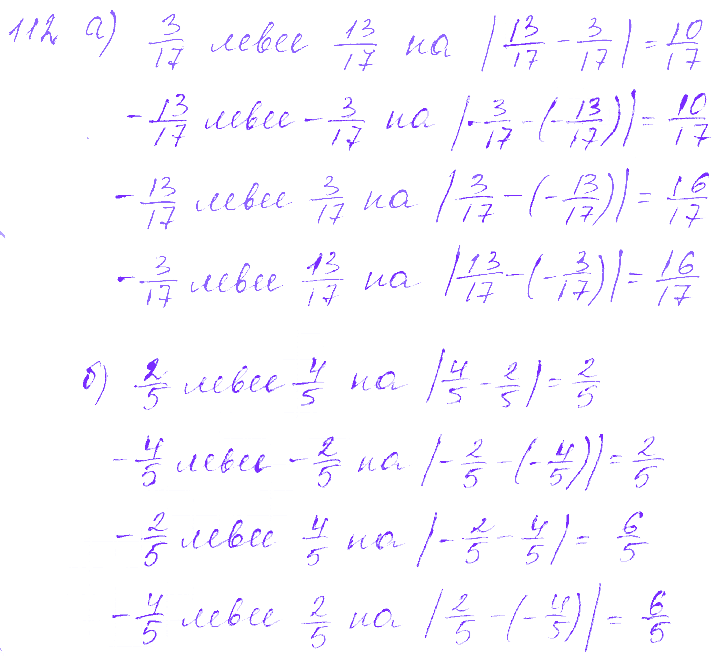 112 а) 3/17 левее 13/17 на |13/17 - 3/17| = 10/17
-13/17 левее -3/17 на |-3/17 - (-13/17)| = 10/17
-13/17 левее 3/17 на |3/17 - (-13/17)| = 16/17
-3/17 левее 13/17 на |13/17 - (-3/17)| = 16/17
б) 2/5 левее 4/5 на |4/5 - 2/5| = 2/5
-4/5 левее -2/5 на |-2/5 - (-4/5)| = 2/5
-2/5 левее 4/5 на |-2/5 - 4/5| = 6/5
-4/5 левее 2/5 на |2/5 - (-4/5)| = 6/5